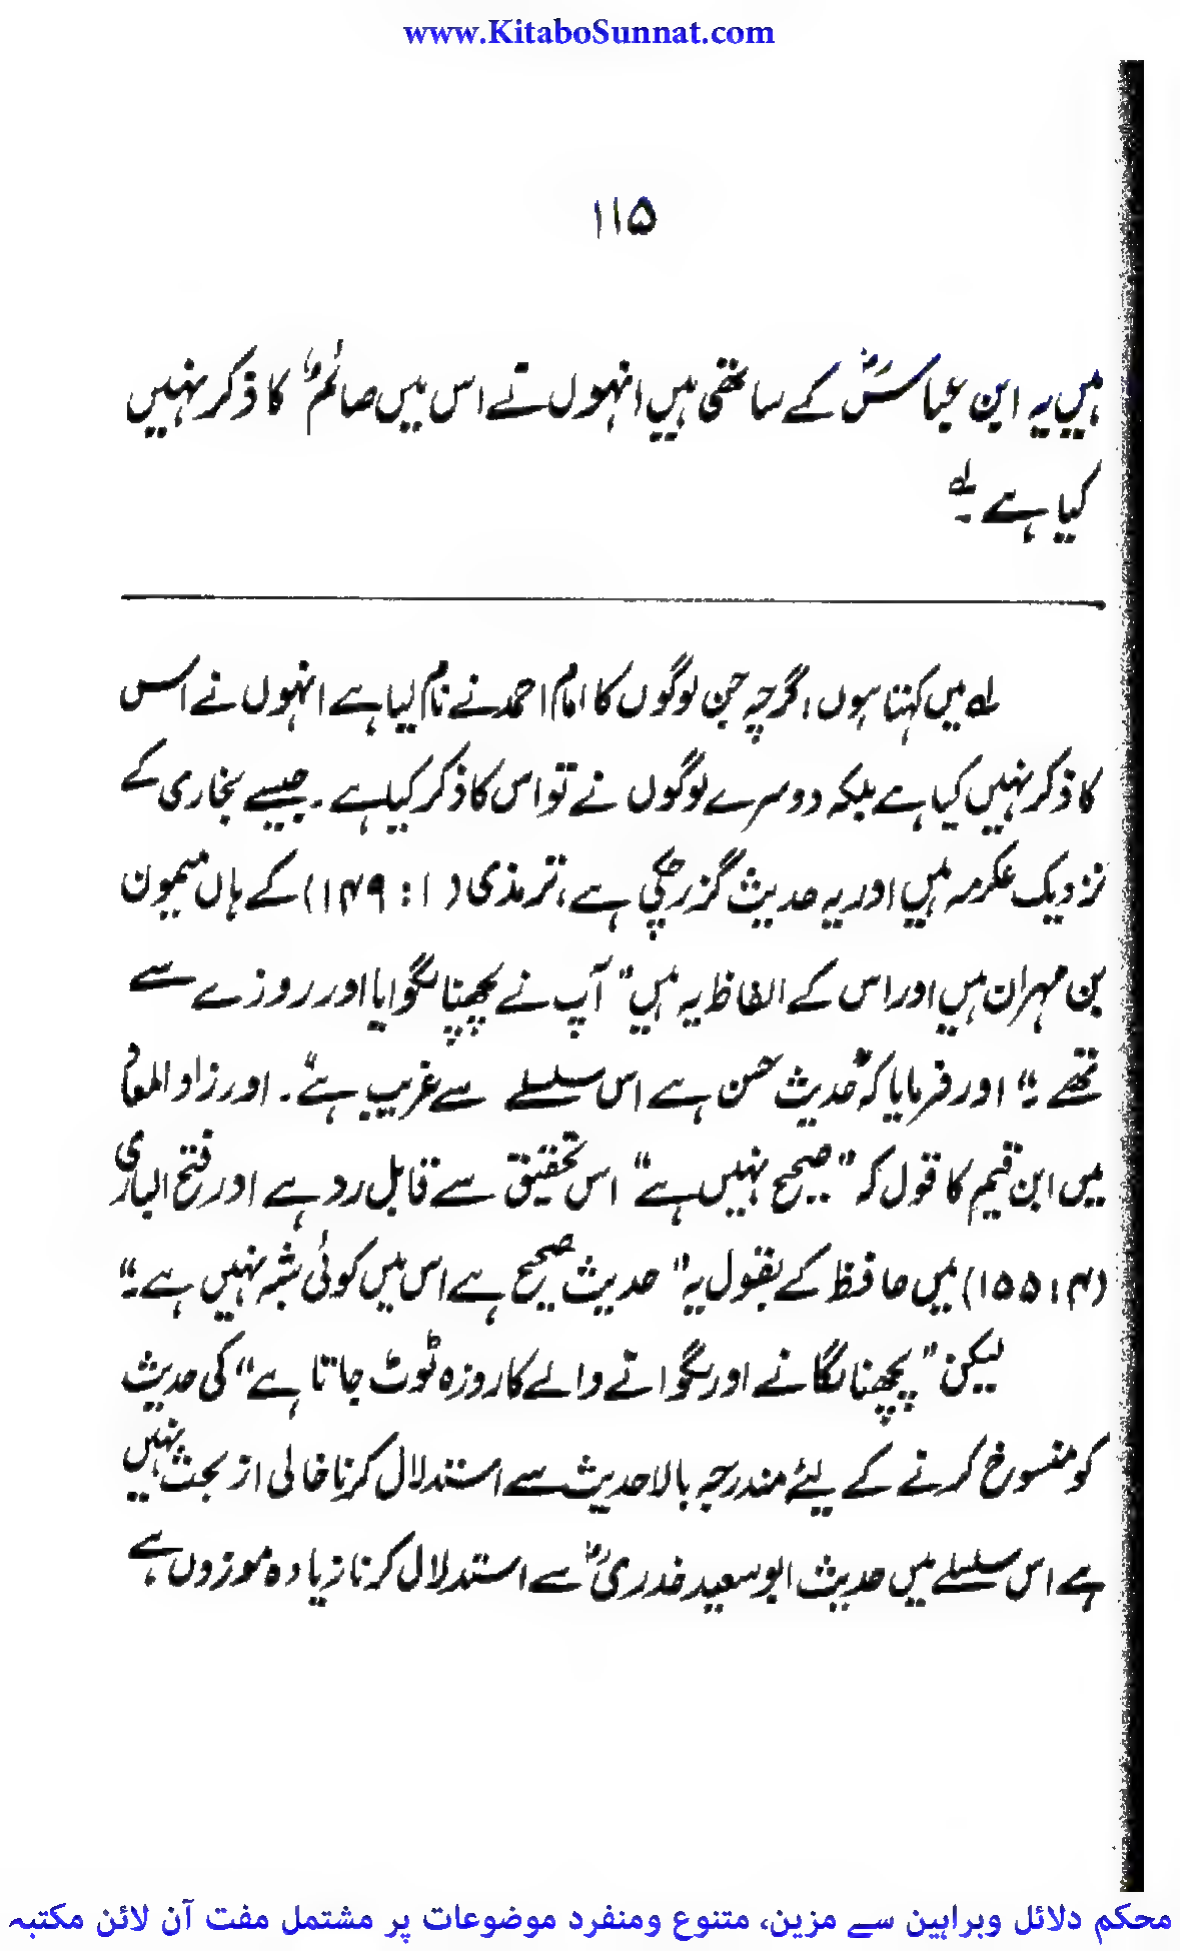 www.KitaboSunnat.com
۱۱۵
ہیں یہ ابن عباسؓ کے ساتھی ہیں انہوں نے اس میں "صائم" کا ذکر نہیں
کیا ہے ۔ لہ
لہ میں کہتا ہوں، اگرچہ جن لوگوں کا امام احمد نے نام لیا ہے انہوں نے اس
کا ذکر نہیں کیا ہے بلکہ دوسرے لوگوں نے تو اس کا ذکر کیا ہے ۔ جیسے بخاری کے
نزدیک عکرمہ ہیں اور یہ حدیث گزر چکی ہے، ترمذی (۱ : ۱۴۹) کے ہاں میمون
بن مہران ہیں اور اس کے الفاظ یہ ہیں "آپ نے پچھنا لگوایا اور روزے سے
تھے ۔" اور فرمایا کہ "حدیث حسن ہے اس سلسلے سے غریب ہے"۔ اور زاد المعاد
میں ابن قیم کا قول کہ "صحیح نہیں ہے" اس تحقیق سے قابل رد ہے اور فتح الباری
(۴ : ۱۵۵) میں حافظ کے بقول یہ "حدیث صحیح ہے اس میں کوئی شبہ نہیں ہے ۔"
لیکن "پچھنا لگانے اور لگوانے والے کا روزہ ٹوٹ جاتا ہے" کی حدیث
کو منسوخ کرنے کے لیئے مندرجہ بالا حدیث سے استدلال کرنا خالی از بحث نہیں
ہے اس سلسلے میں حدیث ابو سعید خدریؓ سے استدلال کرنا زیادہ موزوں ہے
محکم دلائل وبراہین سے مزین، متنوع ومنفرد موضوعات پر مشتمل مفت آن لائن مکتبہ